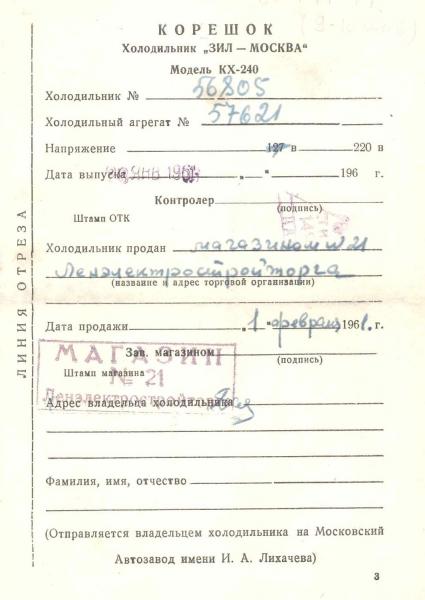 КОРЕШОК
Холодильник „ЗИЛ – МОСКВА“
Модель КХ-240
Холодильник № 56805
Холодильный агрегат № 57621
Напряжение 127 в 220 в
Дата выпуска ЯНВ 196 „ “ 196 г.
Контролер
(подпись)
Штамп ОТК
Холодильник продан магазином № 21
Ленэлектростройторга
(название и адрес торговой организации)
Дата продажи „1“ февраля 1961 г.
МАГАЗИН
Зав. магазином
(подпись)
Штамп магазина
№ 21
Ленэлектростройторга
Адрес владельца холодильника
Фамилия, имя, отчество
(Отправляется владельцем холодильника на Московский
Автозавод имени И. А. Лихачева)
3
ЛИНИЯ ОТРЕЗА